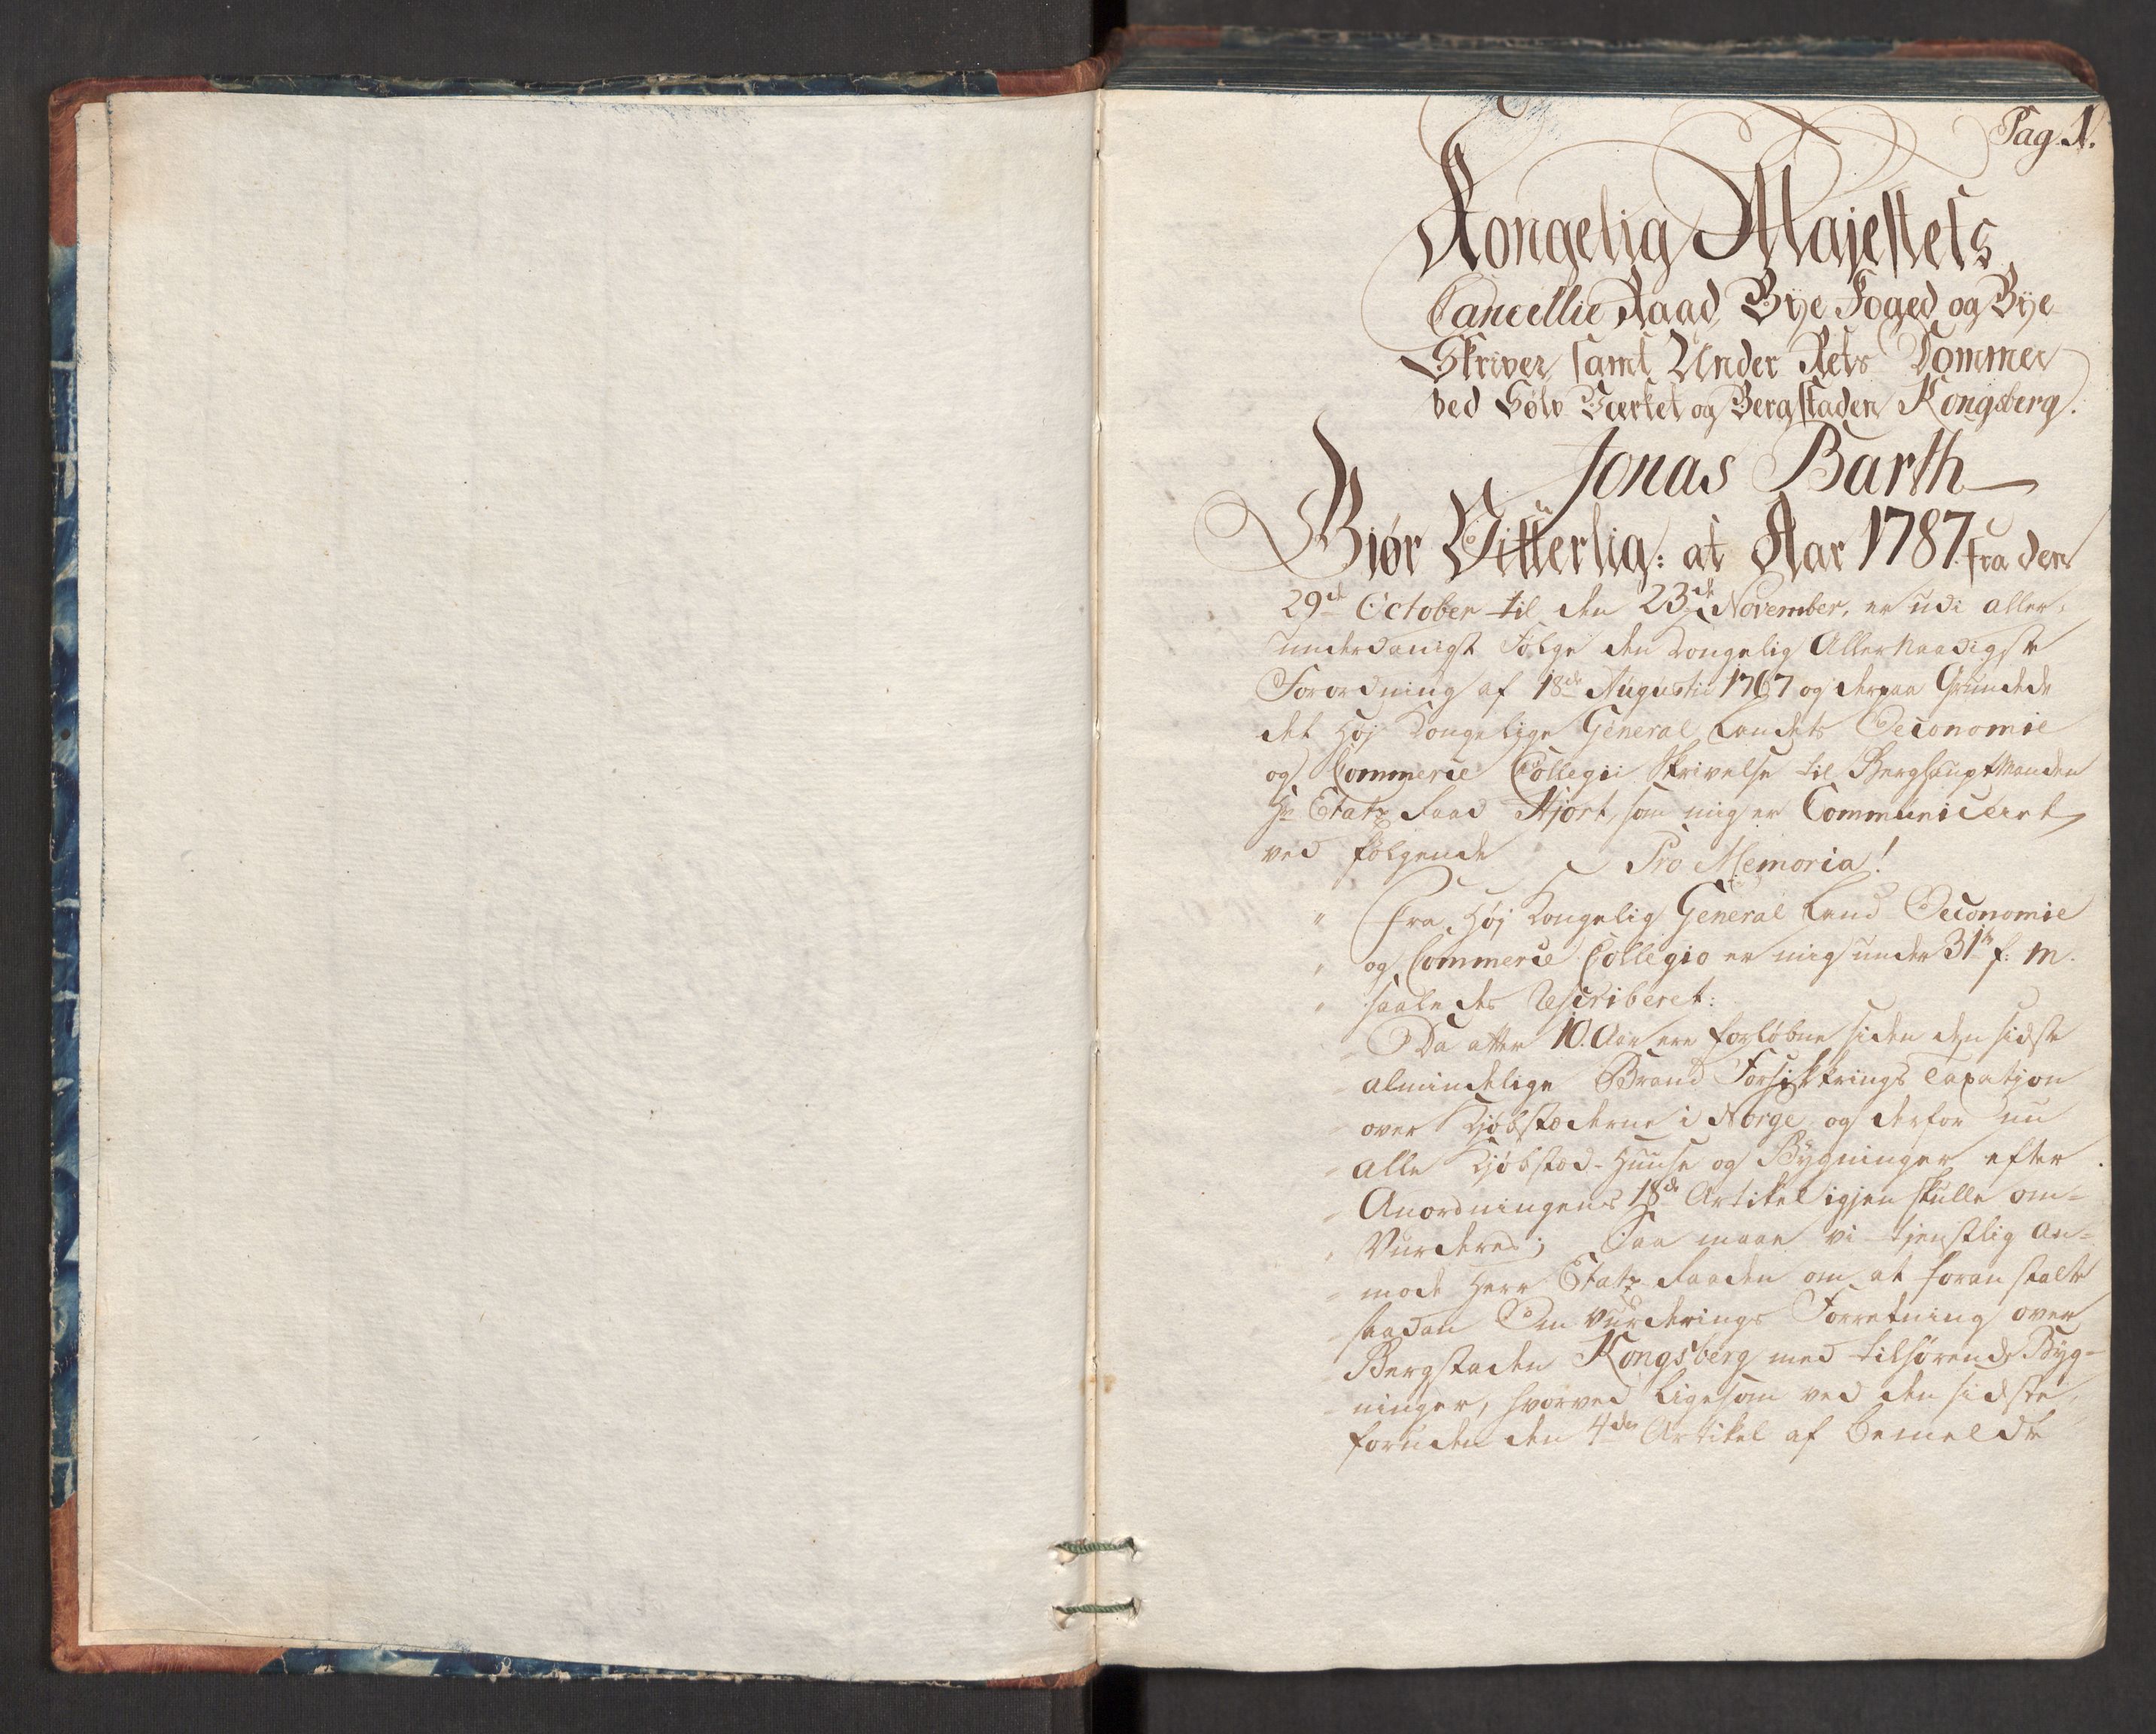 Pag. 1.
Kongelig Majestets
Cancellie Raad Bye Foged og Bye
Skriver samt Under Rets Dommer
ved Sølv Værket og Bergstaden Kongsberg.
Jonas Barth
Giør Vitterlig: at Aar 1787. fra den
29de October til den 23de November, er udi aller-
underdanigst Følge den Kongelig Allernaadigste
Forordning af 18de Augustii 1767 og derpaa Grundede
det Høj Kongelige General Landets Oeconomie
og Commerce Collegii Skrivelse til Berghauptmanden
Hr Etatz Raad Hjort, som mig er Communiceret
ved følgende Pro Memoria!
" Fra Høj Kongelig General Land Oeconomie
" og Commerce Collegio er mig under 31te f: M.
" saaledes Rescriberet:
" Da atter 10. Aar ere forløbne siden den sidste
" almindelige Brand Forsikkrings Taxation
" over Kjøbstæderne i Norge, og derfor nu
" alle Kjøbstæd-Huuse og Bygninger efter
" Anordningens 18de Artikel igjen skulle om-
" Vurderes; Saa maae vi tjenstlig an-
" mode Herr Etatz Raaden om at foranstalte
" saadan Om Vurderings Forretning over
" Bergstaden Kongsberg med tilhørende Byg-
" ninger, hvorved ligesom ved den sidste,
foruden den 4de Artikel af bemeldte